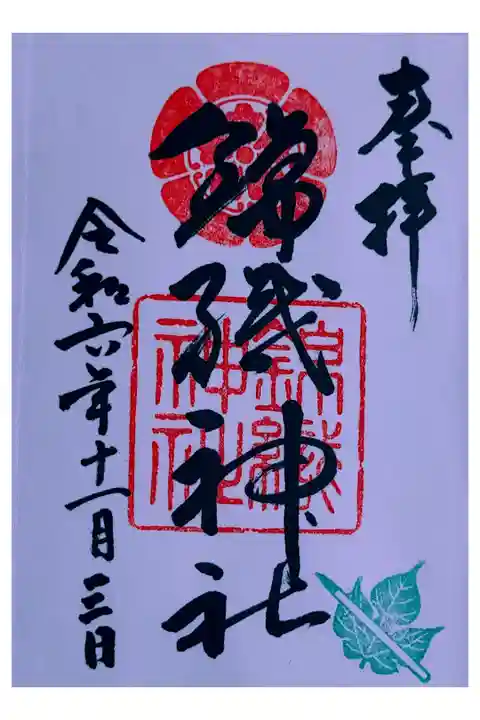 奉拝
錦織神社
錦織
神社
令和六年十一月三日